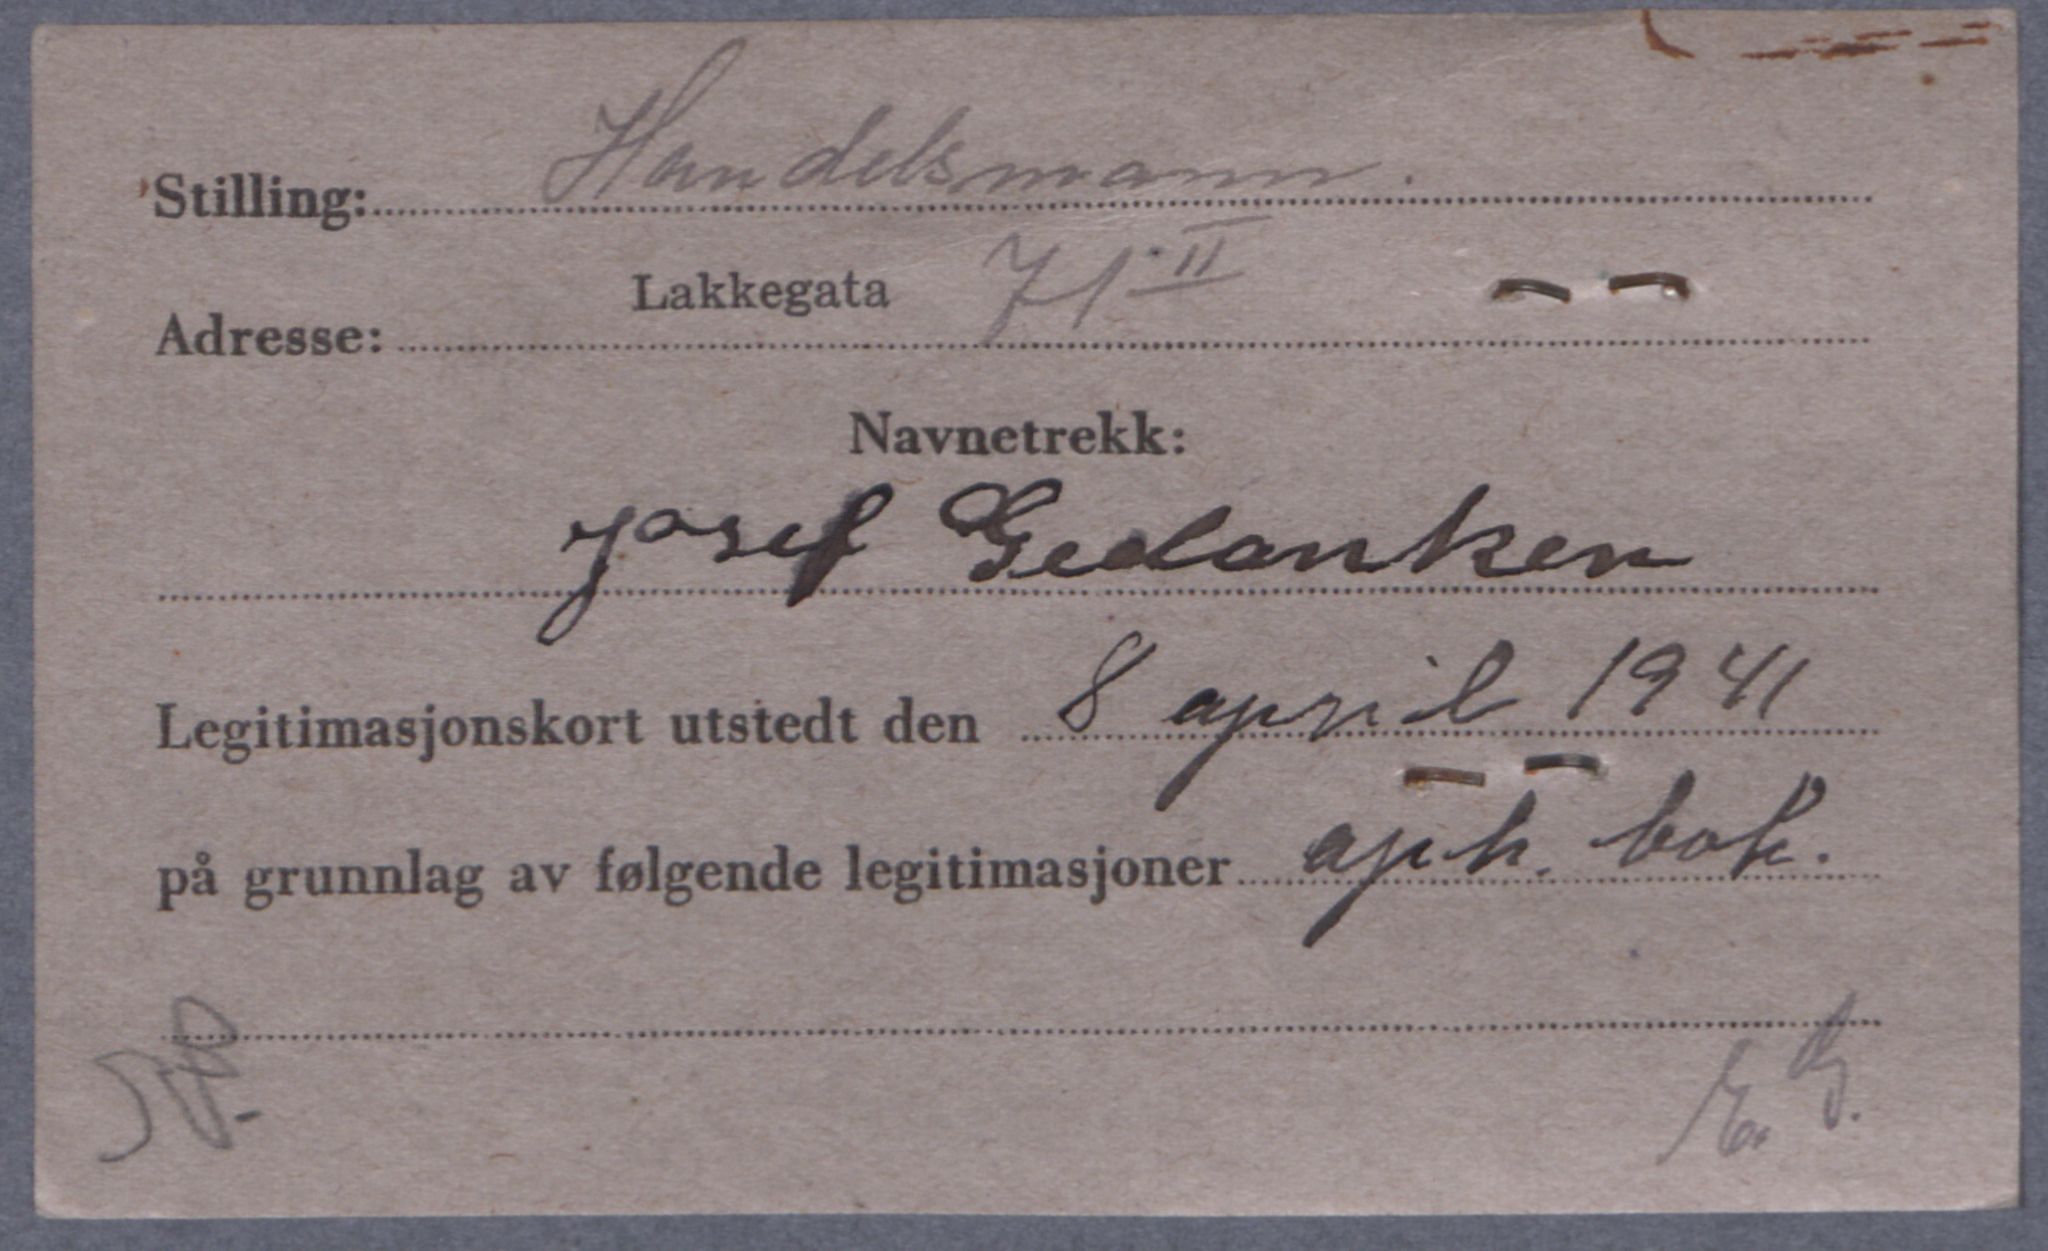 Stilling: Handelsmann.
Adresse: Lakkegata 71 II
Navnetrekk:
Josef Gedanken
Legitimasjonskort utstedt den 8 april 1941
på grunnlag av følgende legitimasjoner oph. bok.
E. G.